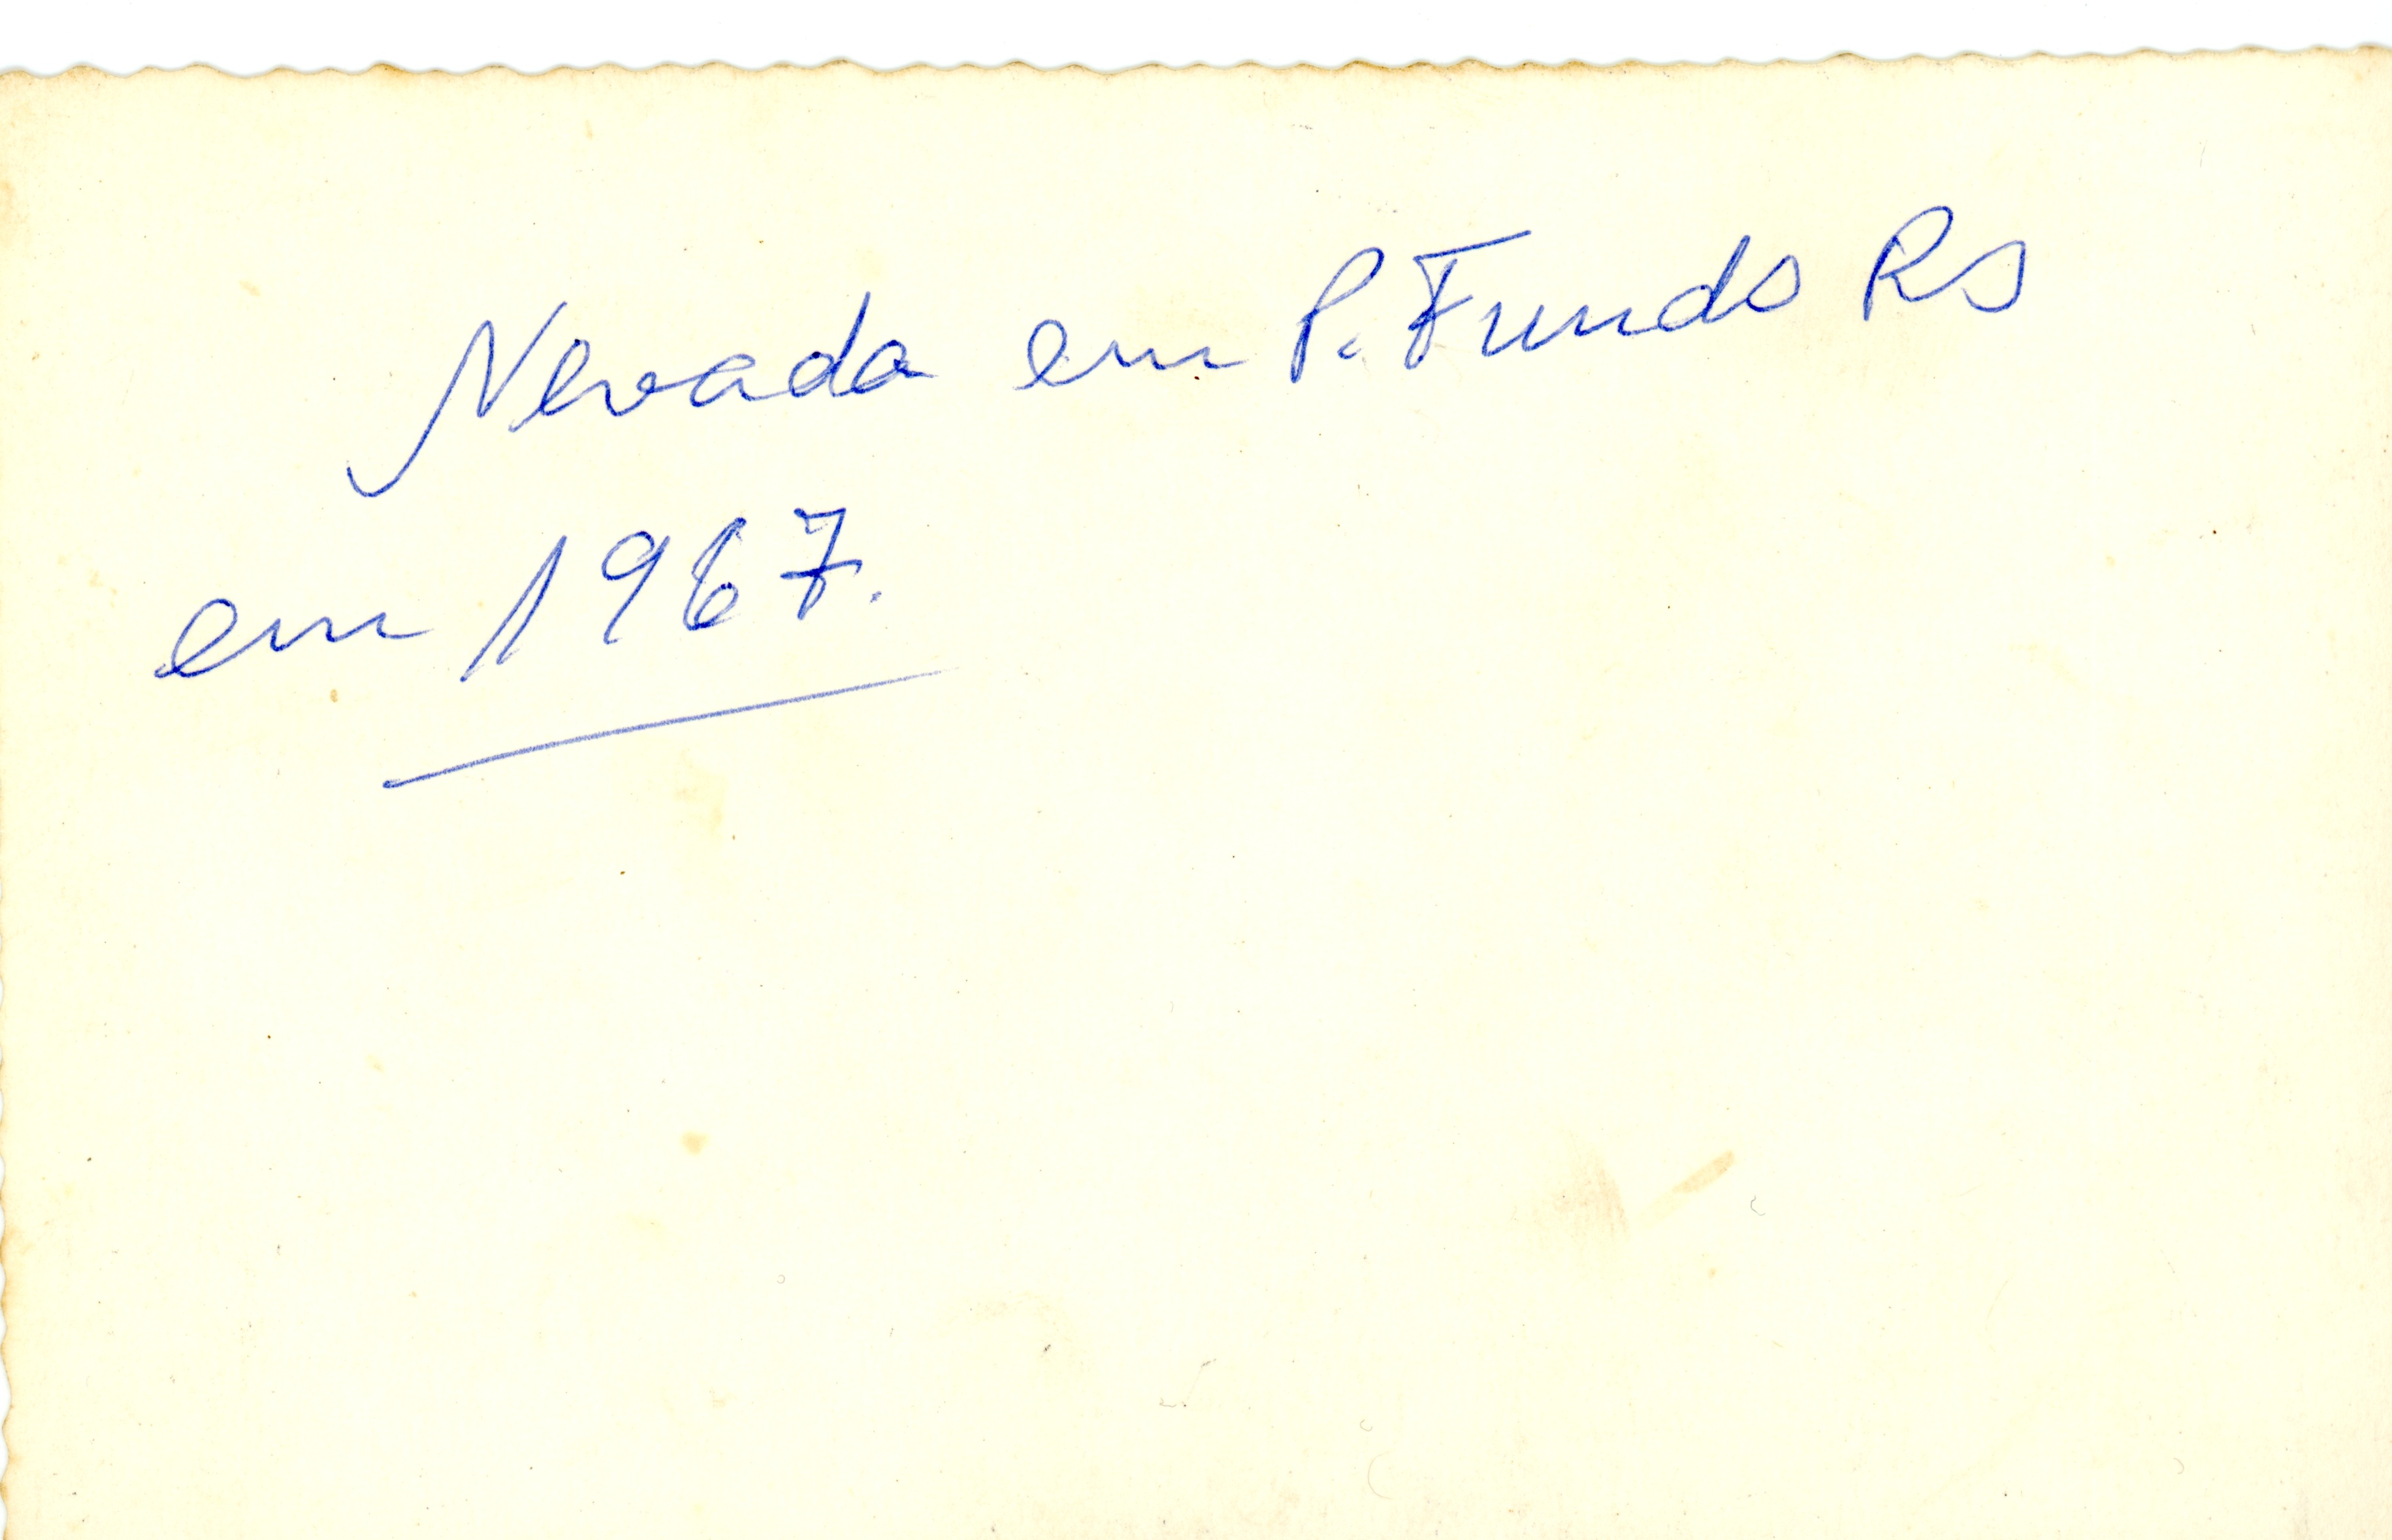 Nevada em P. Fundo RS
em 1967.